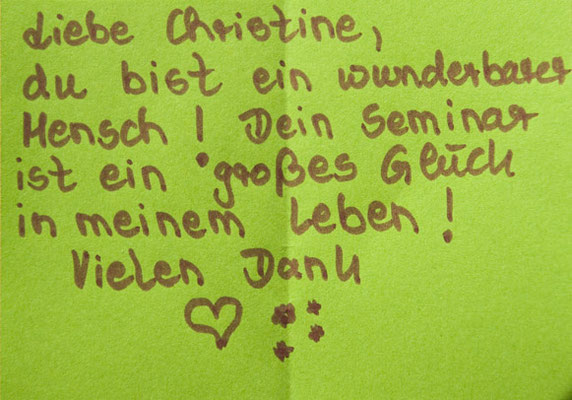 Liebe Christine,
du bist ein wunderbarer
Mensch! Dein Seminar
ist ein großes Glück
in meinem Leben!
Vielen Dank